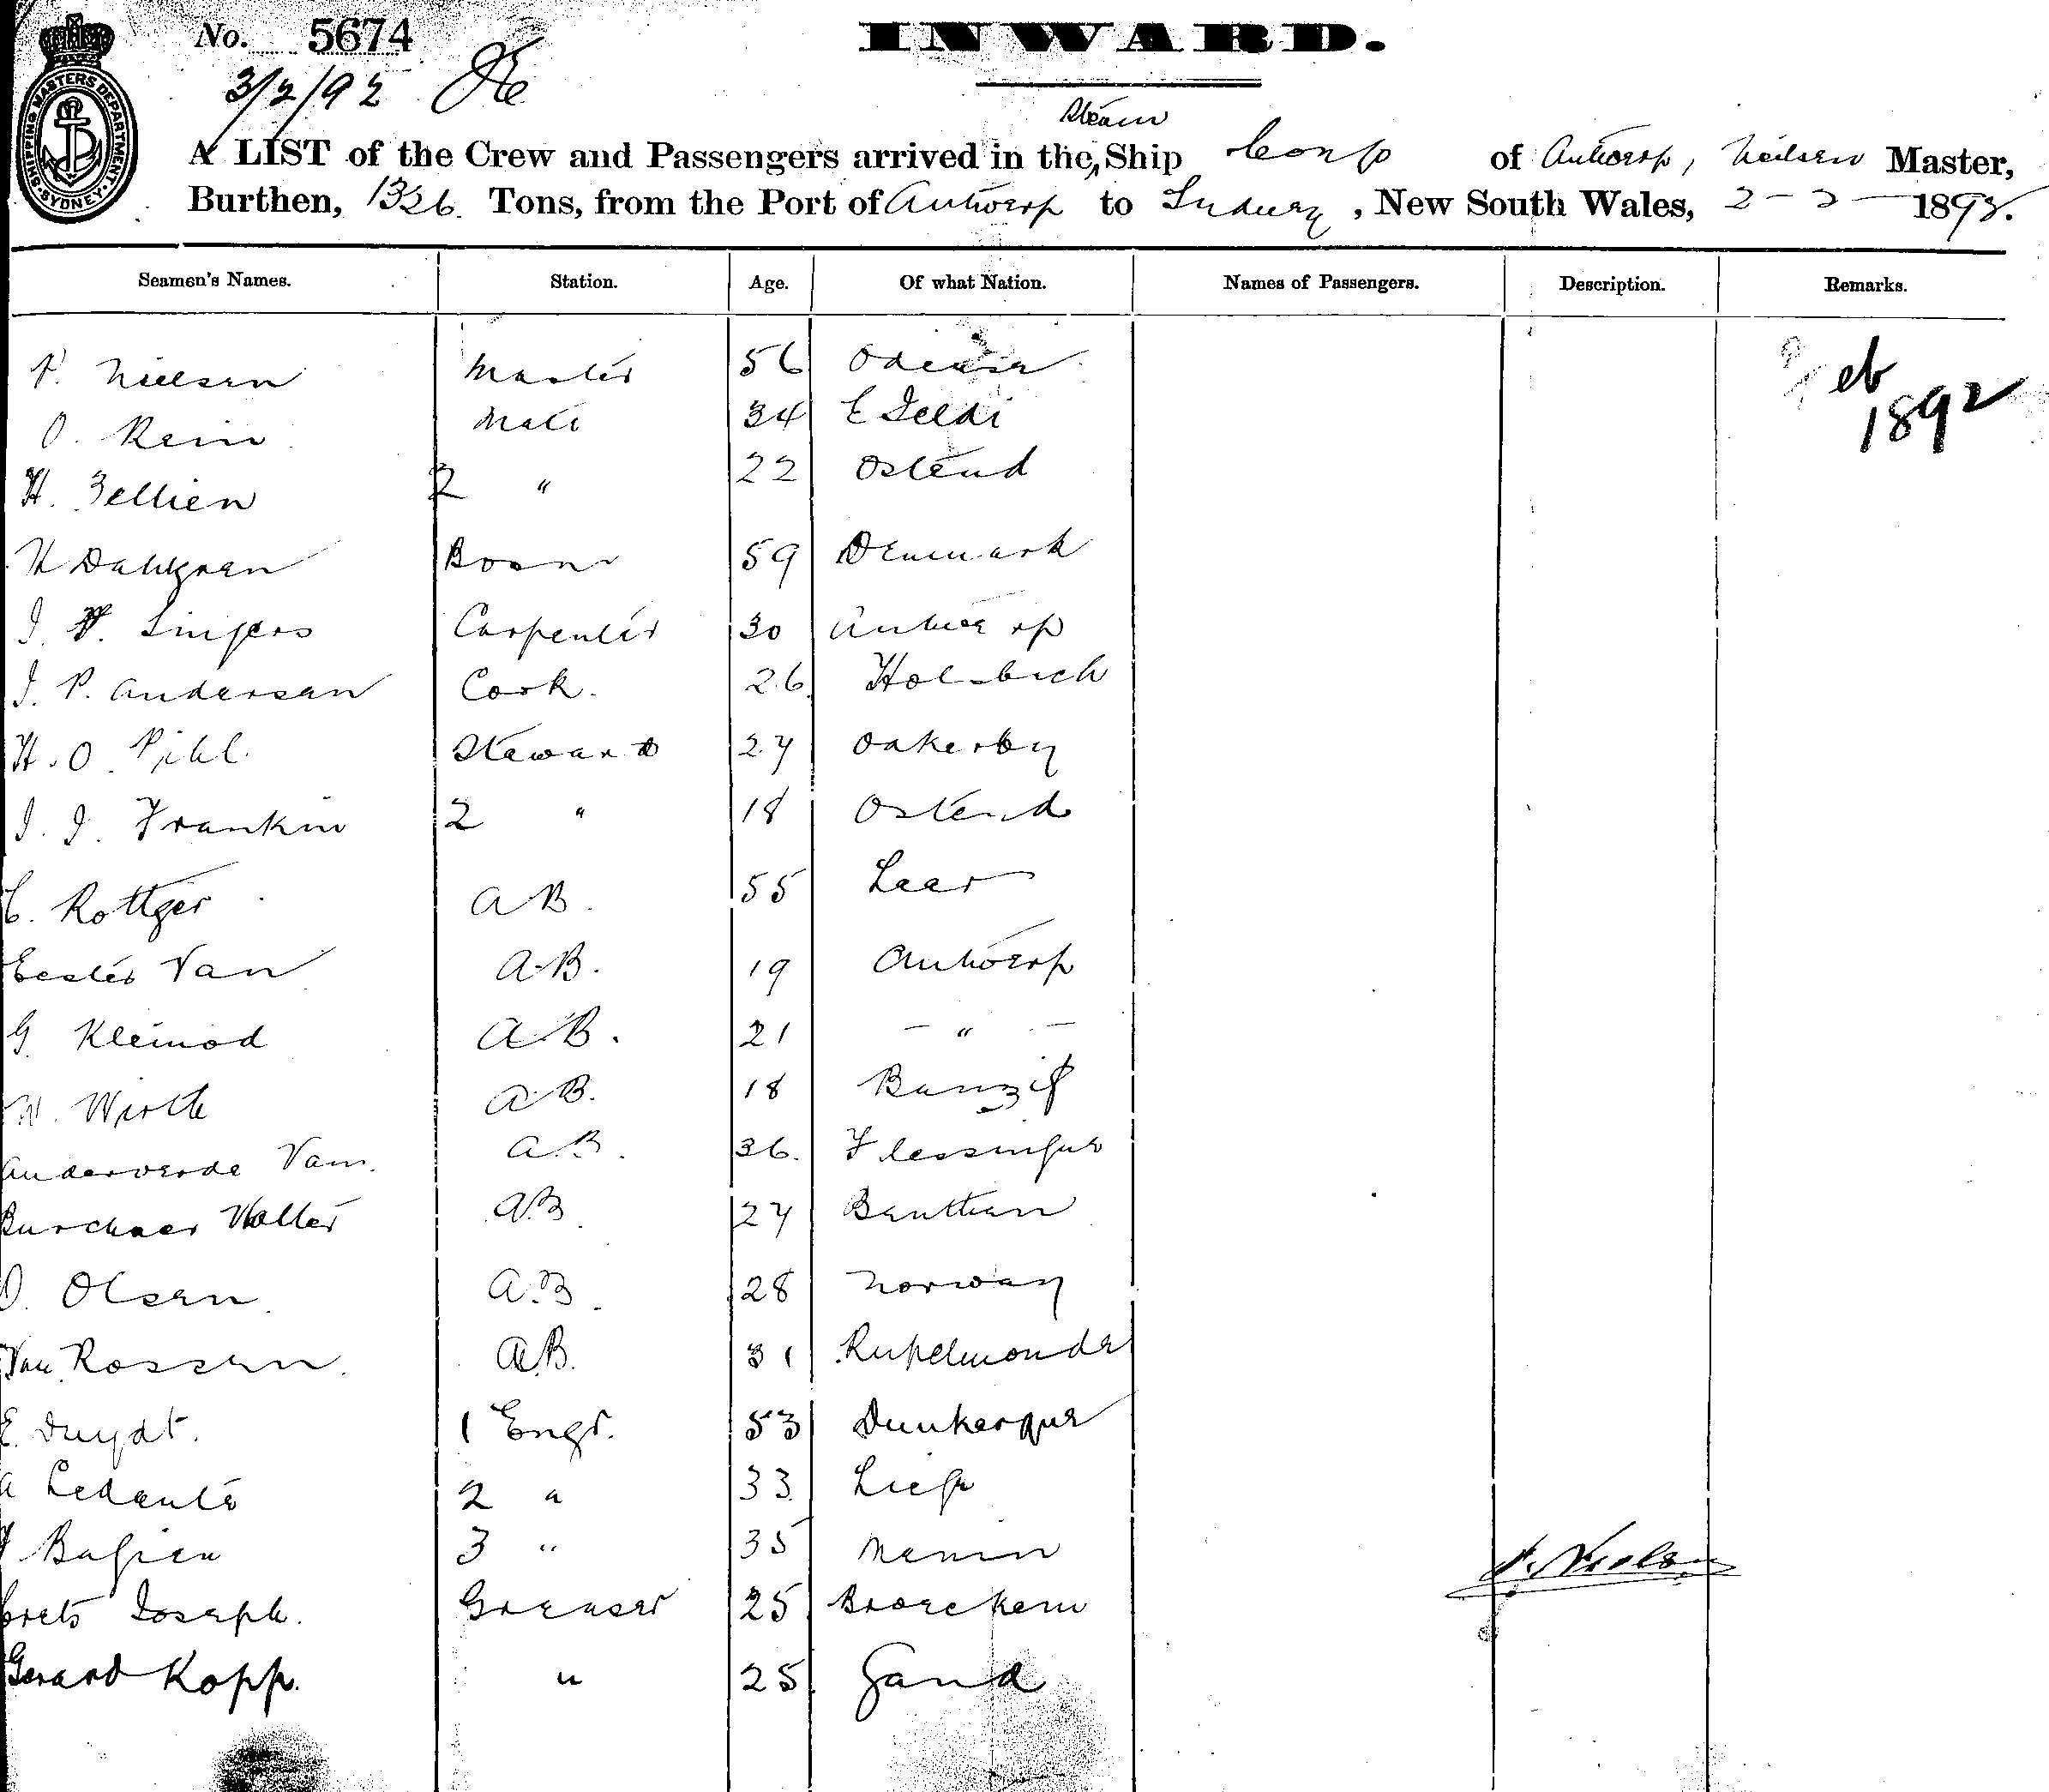 No. 5674
INWARD.
3/2/92
SHIPPING MASTERS DEPARTMENT. SYDNEY.
Steam
A LIST of the Crew and Passengers arrived in the Ship of Antwerp, Neilsen Master,
Burthen, 1326 Tons, from the Port of Antwerp to Sydney, New South Wales, 2-2-1892.
Seamen's Names. Station. Age. Of what Nation. Names of Passengers. Description. Remarks.
Nielsen Master 56 Odense
Feb
1892
O. Rein Mate 34 E
H. Zellien 2 " 22 Ostend
H Dahlgren Bosn 59 Denmark
J. Carpenter 30 Antwerp
J. P. Andersen Cook. 26
H. O. Pihl. Steward 27 Oakerby
J. J. Frankin 2 " 18 Ostend
C. Rottger A B. 55 Leer
Eester Van A.B. 19 Antwerp
G Kleinod A B. 21 - " -
W. Wirth A B. 18
Van. A B. 36. Flessingue
Walter A.B 27 Bauthen
O. Olsen. A.B. 28 Norway
Van Rossen. A.B. 31 Rupelmonde
E. Duydt. 1 Engr. 53 Dunkerque
A Ledante 2 " 33 Liege
3 " 35 Menin
J. Nielsen
Crets Joseph. Greaser 25 Broeckem
Gerard Kopp. " 25 Gand